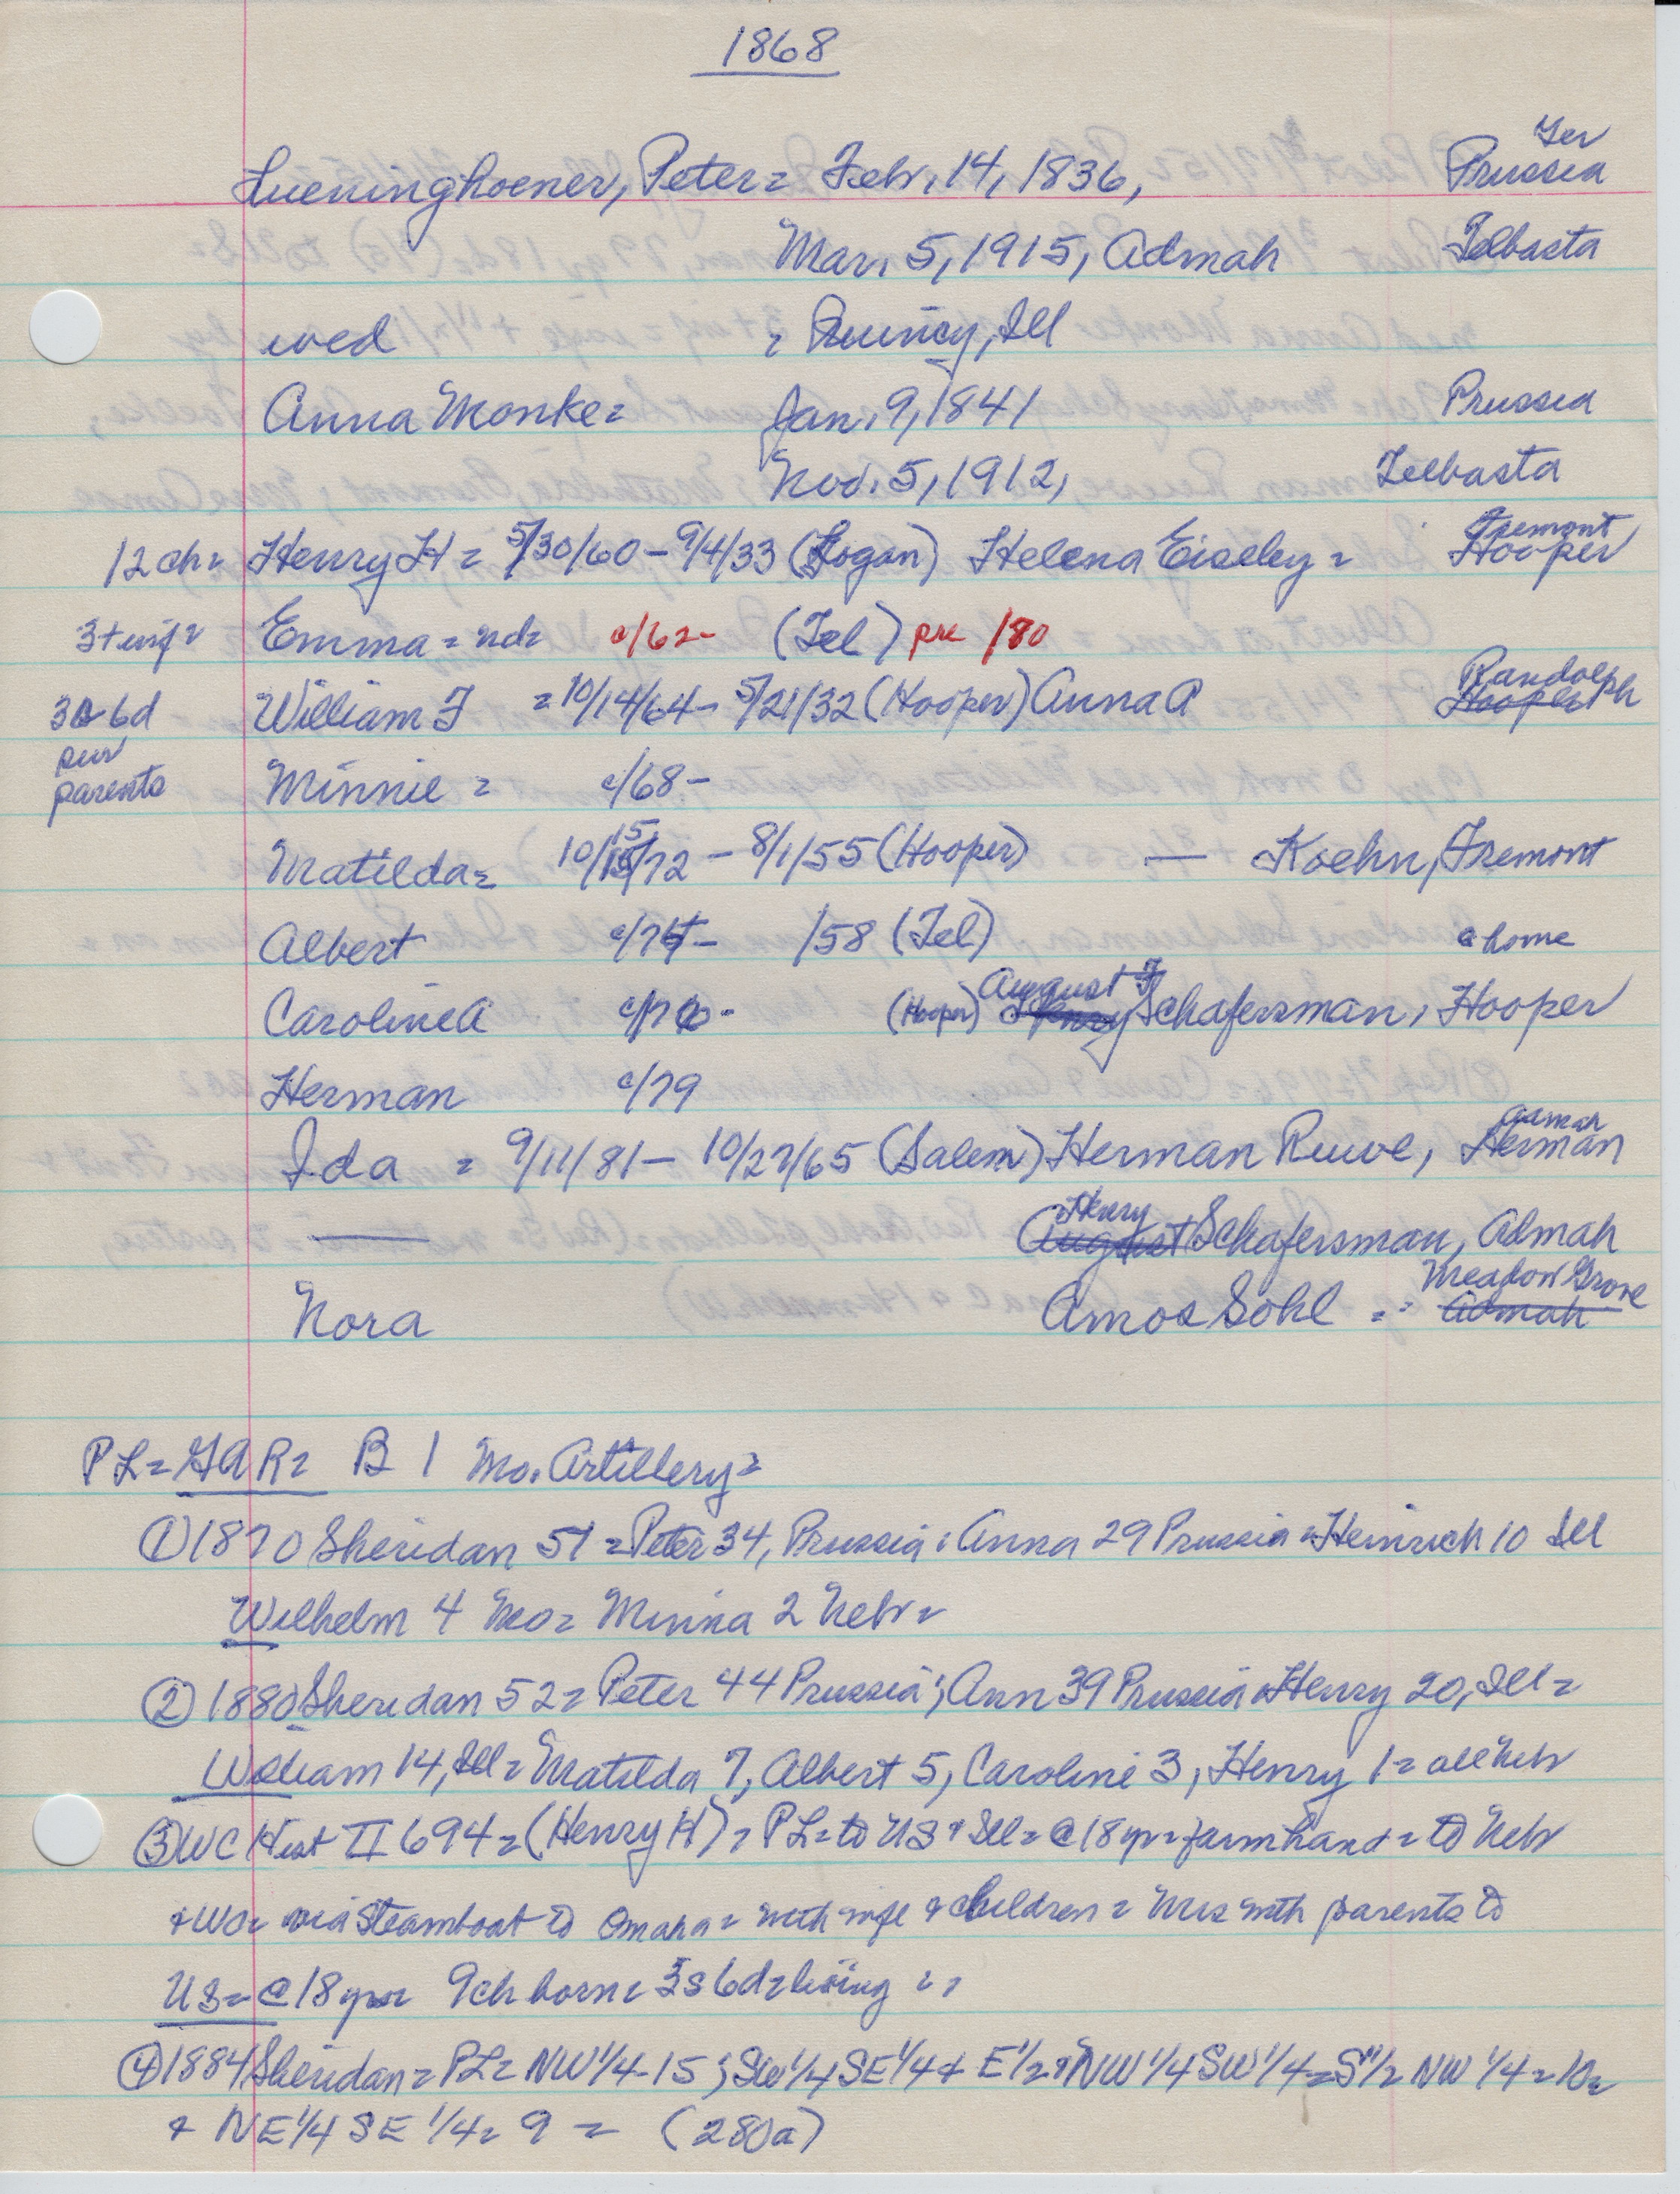 1868
Lueninghoener, Peter = Febr. 14, 1836, Ger Prussia
Mar. 5, 1915, Admah Telbasta
wed = Quincy, Ill
Anna Monke = Jan. 9, 1841 Prussia
Nov. 5, 1912, Telbasta
12 ch = Henry H = 5/30/60 - 9/4/33 (Logan) Helena Eiseley = Fremont Hooper
3 + inf = Emma = nd = c/62 - (Tel) pre /80
3s 6d William F = 10/14/64 - 5/21/32 (Hooper) Anna P Randolph Hooper
sur
parents Minnie = c/68 -
Matilda = 10/15/72 - 8/1/55 (Hooper) — Koehn, Fremont
Albert c/75 - /58 (Tel) @ home
Caroline A c/76 - (Hooper) August F Henry Schafersman, Hooper
Herman c/79
Ida = 9/11/81 - 10/27/65 (Salem) Herman Ruwe, Admah Herman
— Henry August Schafersman, Admah
Nora Amos Sohl = Meadow Grove Admah
PL = GAR = B 1 Mo. Artillery =
① 1870 Sheridan 51 = Peter 34, Prussia = Anna 29 Prussia = Heinrich 10 Ill
Wilhelm 4 Mo = Minna 2 Nebr =
② 1880 Sheridan 52 = Peter 44 Prussia; Ann 39 Prussia = Henry 20, Ill =
William 14, Ill = Matilda 7, Albert 5, Caroline 3, Henry 1 = all Nebr
③ WC Hist II 694 = (Henry H) = PL = to US & Ill = @ 18 yr = farmhand = to Nebr
& WC = via Steamboat to Omaha = with wife & children = Mrs with parents to
US = @ 18 yr = 9 ch born = 3s 6d = living =
④ 1884 Sheridan = PL = NW 1/4 - 15; SW 1/4 SE 1/4 + E 1/2 & NW 1/4 SW 1/4 = S 1/2 NW 1/4 = 10 =
& NE 1/4 SE 1/4 = 9 = (280a)